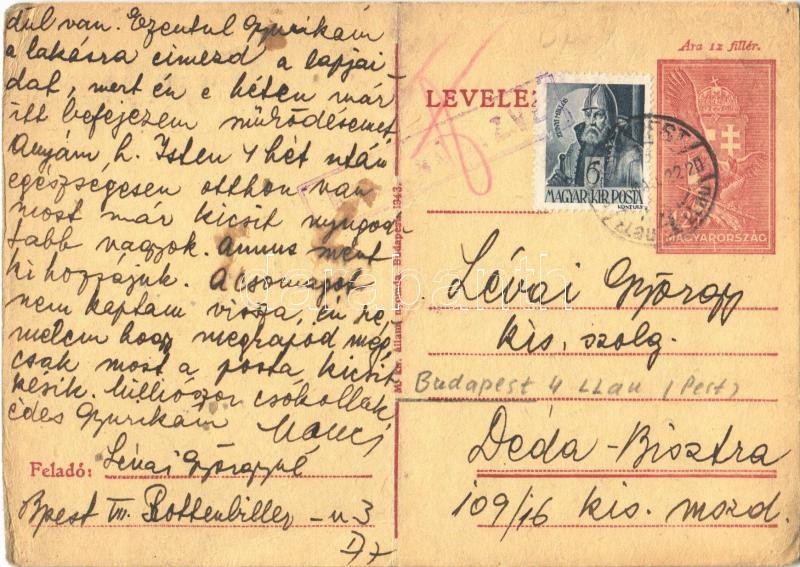 dul van. Ezentul Gyurikám
a lakásra cimezd a lapjai-
dat, mert én e héten már
itt befejezem müködésemet
Anyám, h. Isten 4 hét után
egészségesen otthon van
most már kicsit nyugod
tabb vagyok. Annus ment
ki hozzájuk. A csomagot
nem kaptam vissza, én re
mélem hogy megkapod még
csak most a posta kicsit
késik. Milliószor csókollak
édes Gyurikám Manci
Feladó: Lévai Györgyné
Bpest VII. Rottenbiller-u 3
Mo kir. állami nyomda, Budapest, 1943.
Ára 12 fillér.
LEVELEZ
6
MAGYAR KIR. POSTA
MAGYARORSZÁG
Lévai György
kis. szolg.
Budapest 4 (Pest)
Déda-Bisztra
109/16 kis. mozd.
darabanth